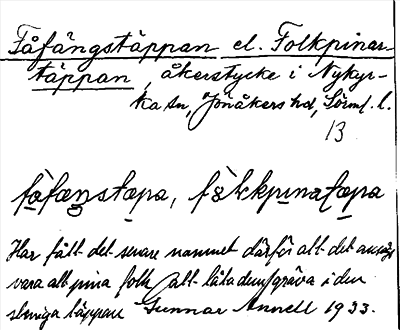 Fåfängstäppan el. Folkpinar-
täppan, åkerstycke i Nykyr-
ka sn, Jönåkers hd, Sörml. l.
13
fåfæŋstæpa, fòlkpinatæpa
Har fått det senare namnet därför att det ansågs
vara att pina folk att låta dem gräva i den
steniga täppan Gunnar Annell 1933.